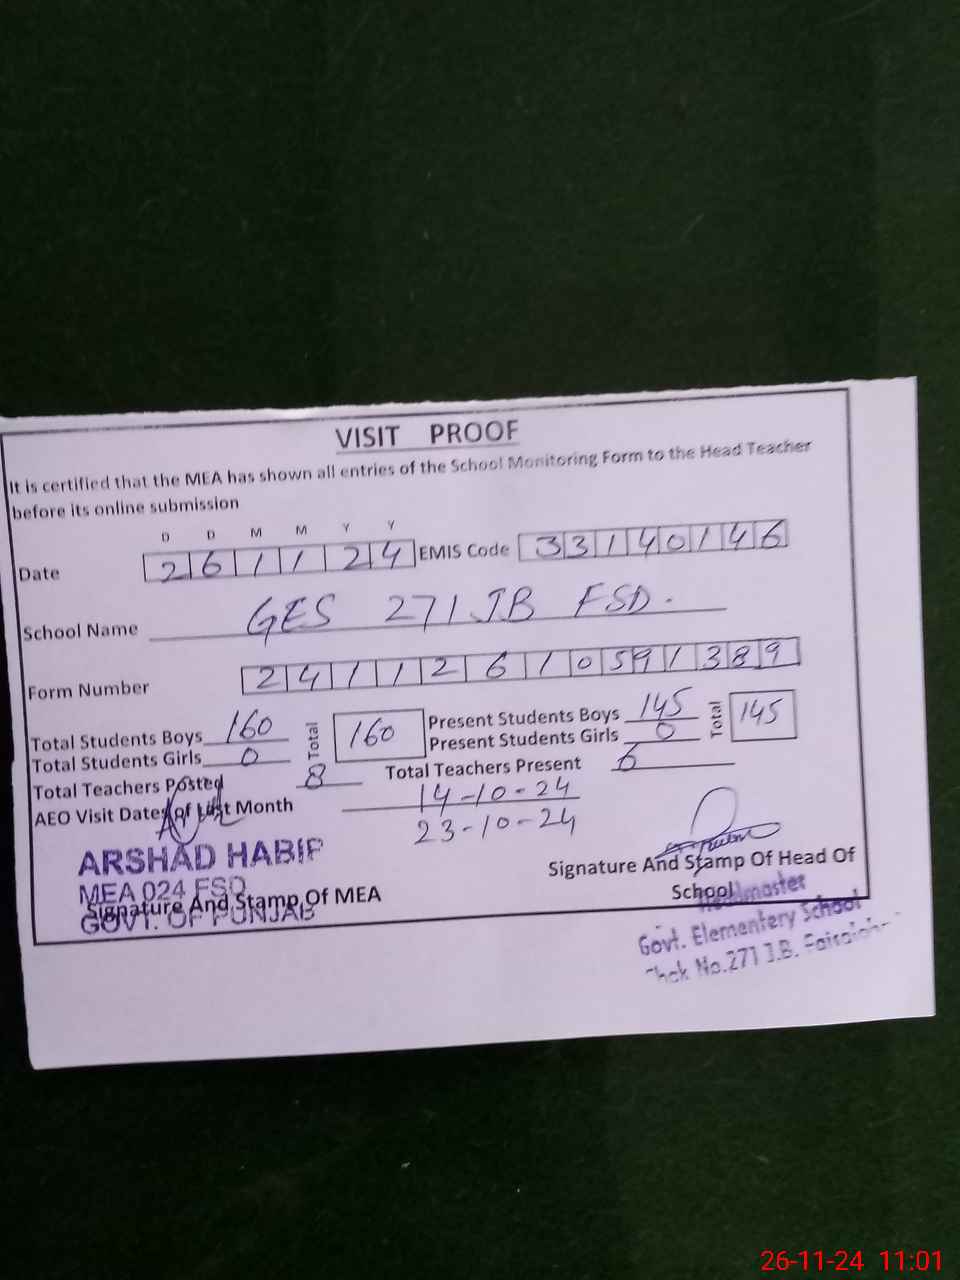 VISIT PROOF
It is certified that the MEA has shown all entries of the School Monitoring Form to the Head Teacher
before its online submission
D D M M Y Y
Date 2 6 1 1 2 4 EMIS Code 3 3 1 4 0 1 4 6
School Name GES 271 JB FSD.
Form Number 2 4 1 1 2 6 1 0 5 9 1 3 8 9
Total Students Boys 160 Total 160 Present Students Boys 145 Total 145
Total Students Girls 0 Present Students Girls 0
Total Teachers Posted 8 Total Teachers Present 6
AEO Visit Dates of Last Month 14-10-24
23-10-24
ARSHAD HABIB
MEA 024 FSD
GOVT. OF PUNJAB
Signature And Stamp Of MEA
Signature And Stamp Of Head Of
School
Headmaster
Govt. Elementery School
Chak No.271 J.B.
26-11-24 11:01